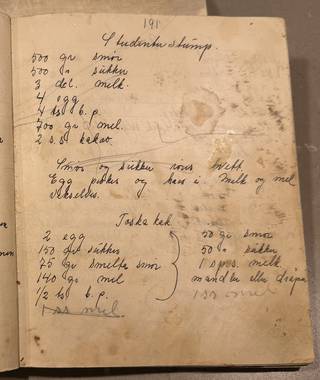 191
Studenterstump.
500 gr smør
500 " sukker
3 del. melk.
4 egg
4 ts b.p.
700 gr mel.
2 s.s kakao.
Smør og sukker røres hvitt
Egg piskes og has i. Melk og mel
vekselvis.
Toska kak
2 egg
150 gr sukker
75 gr smelta smør
140 gr mel
1/2 ts b.p.
1 ss mel
50 gr smør
50 " sukker
1 sps. melk
mandler eller
1 ss mel